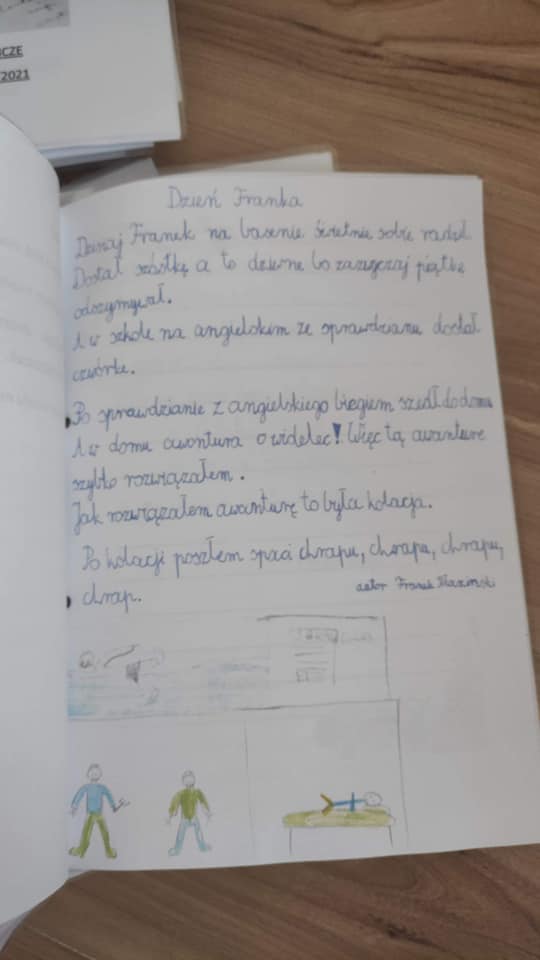 CZE
/2021
Dzień Franka
Dzisiaj Franek na basenie świetnie sobie radził.
Dostał szóstkę a to dziwne bo zazwyczaj piątkę
odszymywał.
A w szkole na angielskim ze sprawdzianu dostał
czwórkę.
Po sprawdzianie z angielskiego biegiem szedł do domu
A w domu awantura o widelec! Więc tą awanturę
szybko rozwiązałem.
Jak rozwiązałem awanturę to była kolacja.
Po kolacji poszłem spaci chrapu, chrapu, chrapu,
chrap.
autor Franek